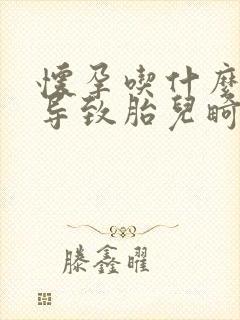 懷孕喫什麼
导致胎兒畸
滕鑫曜